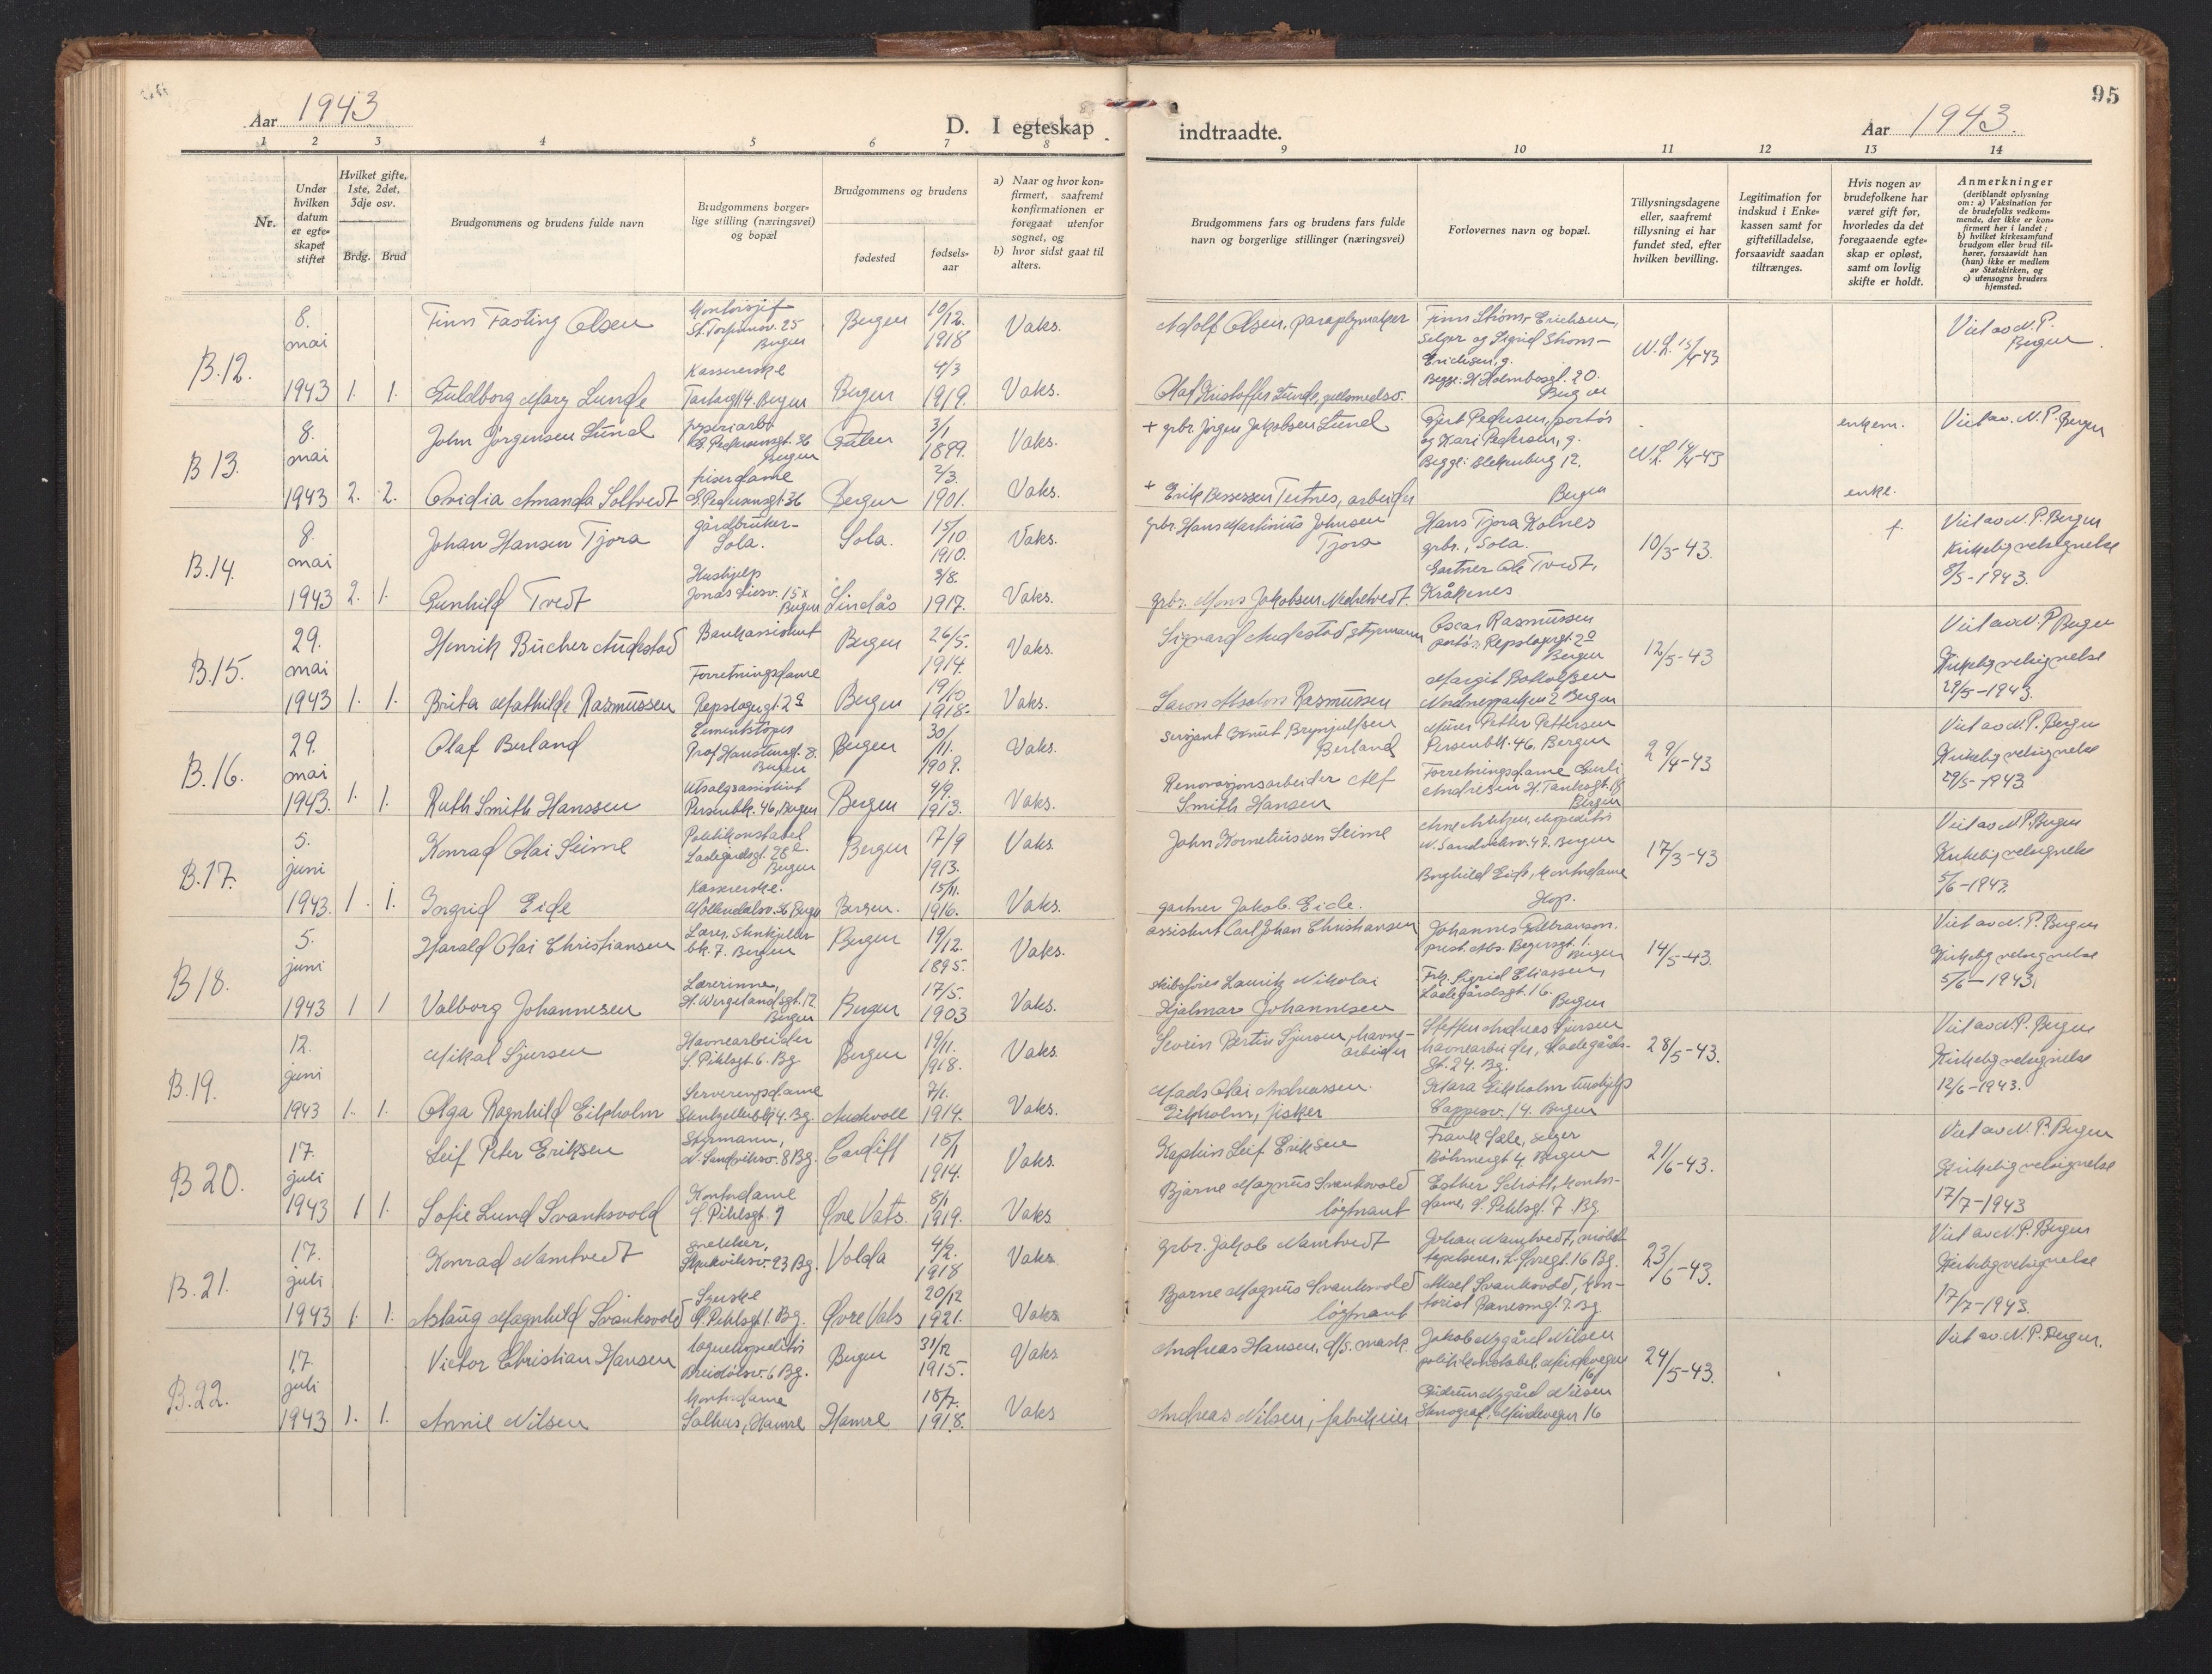 95
Aar 1943
D. I egteskap indtraadte.
Aar 1943.
1 2 3 4 5 6 7 8 9 10 11 12 13 14
Nr.
Under hvilken datum er egteskapet stiftet
Hvilket gifte, 1ste, 2det, 3dje osv.
Brdg. Brud
Brudgommens og brudens fulde navn
Brudgommens borgerlige stilling (næringsvei) og bopæl
Brudgommens og brudens
fødested
fødselsaar
a) Naar og hvor konfirmert, saafremt konfirmationen er foregaat utenfor sognet, og
b) hvor sidst gaat til alters.
Brudgommens fars og brudens fars fulde navn og borgerlige stillinger (næringsvei)
Forlovernes navn og bopæl.
Tillysningsdagene eller, saafremt tillysning ei har fundet sted, efter hvilken bevilling.
Legitimation for indskud i Enkekassen samt for giftetilladelse, forsaavidt saadan tiltrænges.
Hvis nogen av brudefolkene har været gift før, hvorledes da det foregaaende egteskap er opløst, samt om lovlig skifte er holdt.
Anmerkninger
(deriblandt oplysning om: a) Vaksination for de brudefolks vedkommende, der ikke er konfirmert her i landet; b) hvilket kirkesamfund brudgom eller brud tilhører, forsaavidt han (hun) ikke er medlem av Statskirken, og c) utensogns bruders hjemsted.
B.12.
8. mai 1943 1. 1.
Finn Fasting Olsen
Bergen 10/12. 1918 Vaks.
Adolf Olsen, paraplymaker
Finn Strøm-Erichsen,
Selger og Sigrid Strøm-
Erichsen, g.
Begge: H. Holmboesgt. 20.
Bergen
Viet av N.P.
Bergen.
Guldborg Mary Lunde
Kassererske
Bergen 4/3 1919. Vaks.
Olaf Kristoffer Lunde, gullsmedsv.
B 13.
8. mai 1943 2. 2.
John Jørgensen Lund
Bergen
3/1 1899. Vaks.
+ gbr. Jørgen Jakobsen Lund
Gjert Pedersen, portør
og Kari Pedersen, g.
Begge: Blekenberg 12.
Bergen
enkem.
Viet av. N.P. Bergen
Ovidia Amanda Soltvedt
frisørdame
Bergen 2/3. 1901. Vaks.
+ Erik Bessesen Tertnes, arbeider
enke.
B.14.
8. mai 1943 2. 1.
Johan Hansen Tjora
gårdbruker-
Sola.
Sola. 15/10 1910. Vaks.
gbr. Hans Martinius Johnsen
Tjora
Hans Tjora Kolnes
gbr., Sola.
Gartner Ole Tvedt,
Kråkenes
10/3-43.
Viet av N.P. Bergen
Kirkelig velsignelse
8/5-1943.
Gunhild Tvedt
Hushjelp
Jonas Liesv. 15x
Bergen
Lindås 3/8. 1917. Vaks.
B.15.
29. mai 1943 1. 1.
Henrik Bucher Audestad
Bankassistent
Bergen 26/5. 1914. Vaks.
Sigvard Audestad, styrmann
Oscar Rasmussen
portør, Repslagergt. 2a
Bergen
12/5-43
Viet av N.P Bergen
Kirkelig velsignelse
29/5-1943.
Brita Mathilde Rasmussen
Forretningsdame
Repslagergt. 2a
Bergen 19/10 1918. Vaks.
Nordnesparken 2 Bergen
B.16.
29. mai 1943. 1. 1.
Olaf Berland
Bergen
Bergen 30/11. 1909. Vaks.
Sersjant Knut Brynjulfsen
Berland
Murer Petter Pettersen
Persenbk. 46. Bergen
Forretningsdame Gurli
Andresen
Bergen
29/4-43
Viet av N.P. Bergen
Kirkelig velsignelse
29/5-1943
Ruth Smith Hanssen
Utsalgsassistent
Persenbk. 46, Bergen
Bergen 4/9. 1913. Vaks.
Renovasjonsarbeider Alf
Smith Hansen
B.17.
5. juni 1943. 1. 1.
Konrad Olai Seime
Politikonstabel
Ladegårdsgt. 28a.
Bergen
Bergen 17/9 1913. Vaks.
John Kornelíussen Seime
N. Sandviksv. 47. Bergen
Borghild Eide, kontordame
Hop.
17/3-43
Viet av N.P. Bergen
Kirkelig velsignelse
5/6-1943.
Ingrid Eide
Kassererske.
Møllendalsv. 36 Bergen
Bergen. 15/11. 1916. Vaks.
gartner Jakob. Eide.
B 18.
5. juni 1943 1 1
Harald Olai Christiansen
Lærer, Stenkjeller
bk. 7. Bergen
Bergen 19/12. 1895. Vaks.
assistent Carl Johan Christiansen
Bergen
Frk. Sigrid Eliassen,
Ladegårdsgt. 16.
Bergen
14/5-43.
Viet av N.P. Bergen
Kirkelig velsignelse
5/6-1943.
Valborg Johannesen
Lærerinne,
H. Wergelandsgt. 12
Bergen
Bergen 17/5. 1903 Vaks.
skibsfører Lauritz Nikolai
Hjalmar Johannesen
B.19.
12. juni 1943 1. 1.
Mikal Sjursen
Havnearbeider
S. Pihlsgt. 6. Bg
Bergen 19/11. 1918. Vaks.
Severin Bertin Sjursen, havne-
arbeider
Steffen Andreas Sjursen
havnearbeider, Ladegårds-
gt. 24. Bg.
Klara Eikholm hushjelp
Cappesv. 14. Bergen
28/5-43.
Viet av N.P. Bergen
Kirkelig velsignelse
12/6-1943.
Olga Ragnhild Eikholm
Serveringsdame
Askvoll 7/1. 1914. Vaks.
Mads Olai Andreassen
Eikholm, fisker
B 20.
17. juli 1943 1 1.
Leif Peter Eriksen
Styrmann,
N. Sandviksv. 8 Bg.
Cardiff 18/1 1914. Vaks.
Kaptein Leif Eriksen
Frank Sæle, selger
Bøhmergt 4. Bergen
Esther Schøtt, kontor-
dame, S. Pihlsgt. 7. Bg.
21/6-43.
Viet av N.P. Bergen
Kirkelig velsignelse
17/7-1943
Sofie Lund Svanksvold
Kontordame
S. Pihlsgt. 7
Øvre Vats. 8/1 1919. Vaks
Bjarne Magnus Svanksvold
løytnant
B.21.
17. juli 1943 1. 1.
Konrad Namtvedt
snekker,
Volda 4/2. 1918 Vaks
gbr. Jakob Namtvedt
Johan Namtvedt, møbel
23/6-43.
Viet av N.P. Bergen
Kirkelig velsignelse
17/7-1943.
Aslaug Magnhild Svanksvold
Syerske
S. Pihlsgt 1. Bg.
Øvre Vats 20/12 1921. Vaks
Bjarne Magnus Svanksvold
løytnant
B.22.
17. juli 1943 1. 1.
Victor Christian Hansen
lagerekspeditør
Bergen 31/12 1915. Vaks
Andreas Hansen, d/s. mask.
Jakob Nygård Nilsen
politikonstabel
Gudrun Nygård Nilsen
24/5-43.
Viet av. N.P. Bergen.
Annie Nilsen
Kontordame
Salhus, Hamre
Hamre 18/7. 1918. Vaks
Andreas Nilsen, fabrikeier